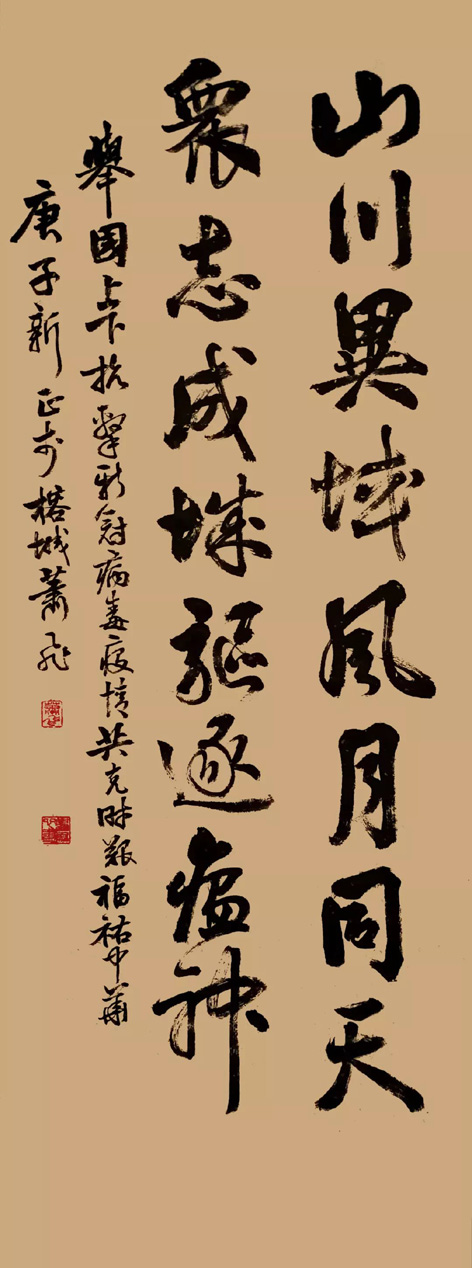 山川異域風月同天
眾志成城驅逐瘟神
舉国上下抗擊新冠病毒疫情共克时艱福祐中華
庚子新正于榕城蕭飛